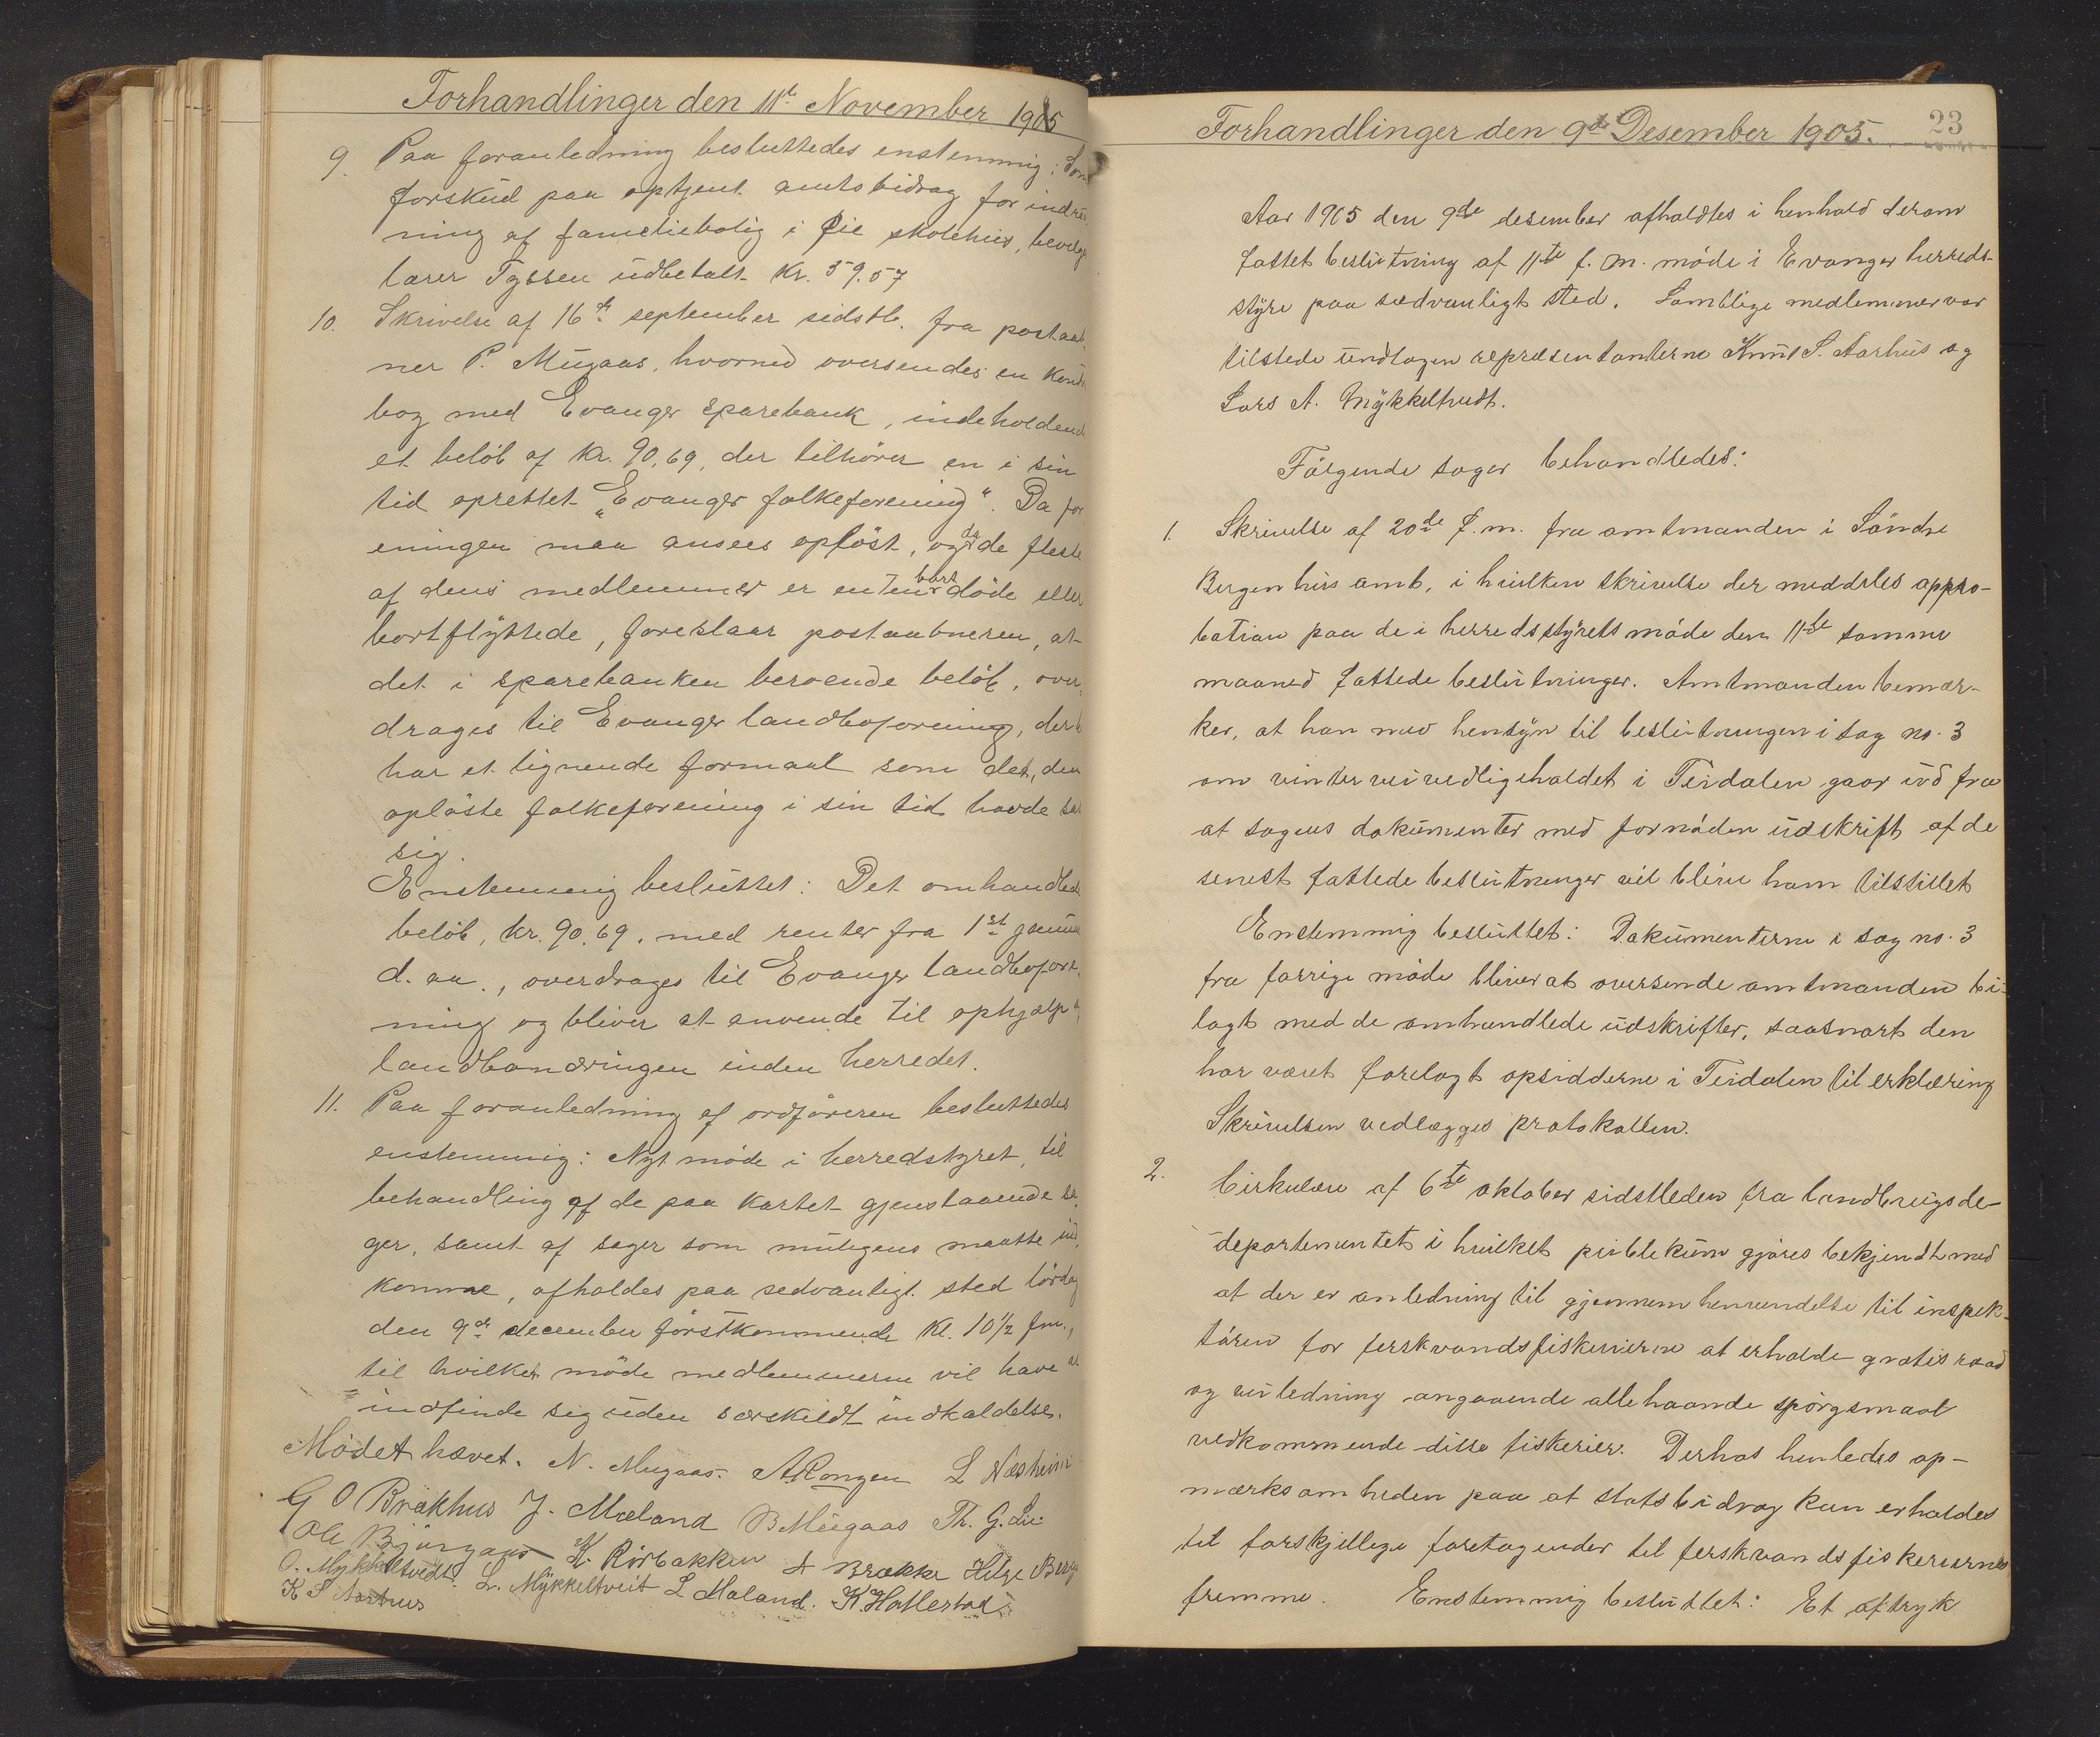 Forhandlinger den 11te November 1905
9. Paa foranledning besluttedes enstemmig: Som
forskud paa optjent amtsbidrag for indred
ning af familiebolig i Øie skolehus, bevilg
lærer Tyssen udbetalt kr. 59.57
10. Skrivelse af 16de september sidstl. fra postaab
ner P. Mugaas, hvormed oversendes en kont
bog med Evanger sparebank, indeholdend
et beløb af kr. 90,69, der tilhører en i sin
tid oprettet „Evanger folkeforening". Da for
eningen maa ansees opløst, og da de fleste
af dens medlemmer er enten bare døde eller
bortflyttede, foreslaar postaabneren, at
det i sparebanken beroende beløb, over
drages til Evanger landboforening, der
har et lignende formaal som det, den
opløste folkeforening i sin tid havde sat
sig.
Enstemmig besluttet: Det omhandled
beløb, kr. 90,69, med renter fra 1st januar
d. aa., overdrages til Evanger landbofore-
ning og bliver at anvende til ophjælp
landbonæringen inden herredet.
11. Paa foranledning af ordføreren besluttedes
enstemmig: Nyt møde i herredstyret, til
behandling af de paa kartet gjenstaaende sa
ger, samt af sager som muligens maatte ind
komme, afholdes paa sedvanligt sted lørdag
den 9de december førstkommende kl. 10½ fm.,
til hvilket møde medlemmerne vil have at
indfinde sig uden særskildt indkaldelse.
Mødet hævet. N. Mugaas. A Rongen L Næsheim
G O Brækhus J. Mæland B Mugaas Th. G. Lie
Ole Bjørgaas K. Rørbakken A Brække Helge Berge
O. Mykkeltvedt. L. Mykkeltveit L Maland. K Hallestad
K S Aarhus
Forhandlinger den 9de Desember 1905. 23
Aar 1905 den 9de desember afholdtes i henhold derom
fattet beslutning af 11te f. m. møde i Evanger herreds-
styre paa sædvanligt sted. Samtlige medlemmer var
tilstede undtagen repræsentanterne Knut S. Aarhus og
Lars A. Mykkeltvedt.
Følgende sager behandledes:
1. Skrivelse af 20de f. m. fra amtmanden i Søndre
Bergenhus amt, i hvilken skrivelse der meddeles appro-
bation paa de i herredsstyrets møde den 11te samme
maaned fattede beslutninger. Amtmanden bemær-
ker, at han med hensyn til beslutningen i sag no. 3
om vinterveivedligeholdet i Teidalen gaar ud fra
at sagens dokumenter med fornøden udskrift af de
senest fattede beslutninger vil blive ham tilstillet
Enstemmig besluttet: Dokumenterne i sag no. 3
fra forrige møde bliver at oversende amtmanden bi-
lagt med de omhandlede udskrifter, saasnart den
har været forelagt opsidderne i Teidalen til erklæring
Skrivelsen vedlægges protokollen.
2. Cirkulære af 6te oktober sidstleden fra landbrugsde-
departementet i hvilket publikum gjøres bekjendt med
at der er anledning til gjennem henvendelse til inspek-
tøren for ferskvandsfiskerierne at erholde gratis raad
og veiledning angaaende allehaande spørgsmaal
vedkommende disse fiskerier. Derhos henledes op-
mærksomheden paa at statsbidrag kan erholdes
til forskjellige foretagender til ferskvandsfiskeriernes
fremme. Enstemmig besluttet: Et aftryk